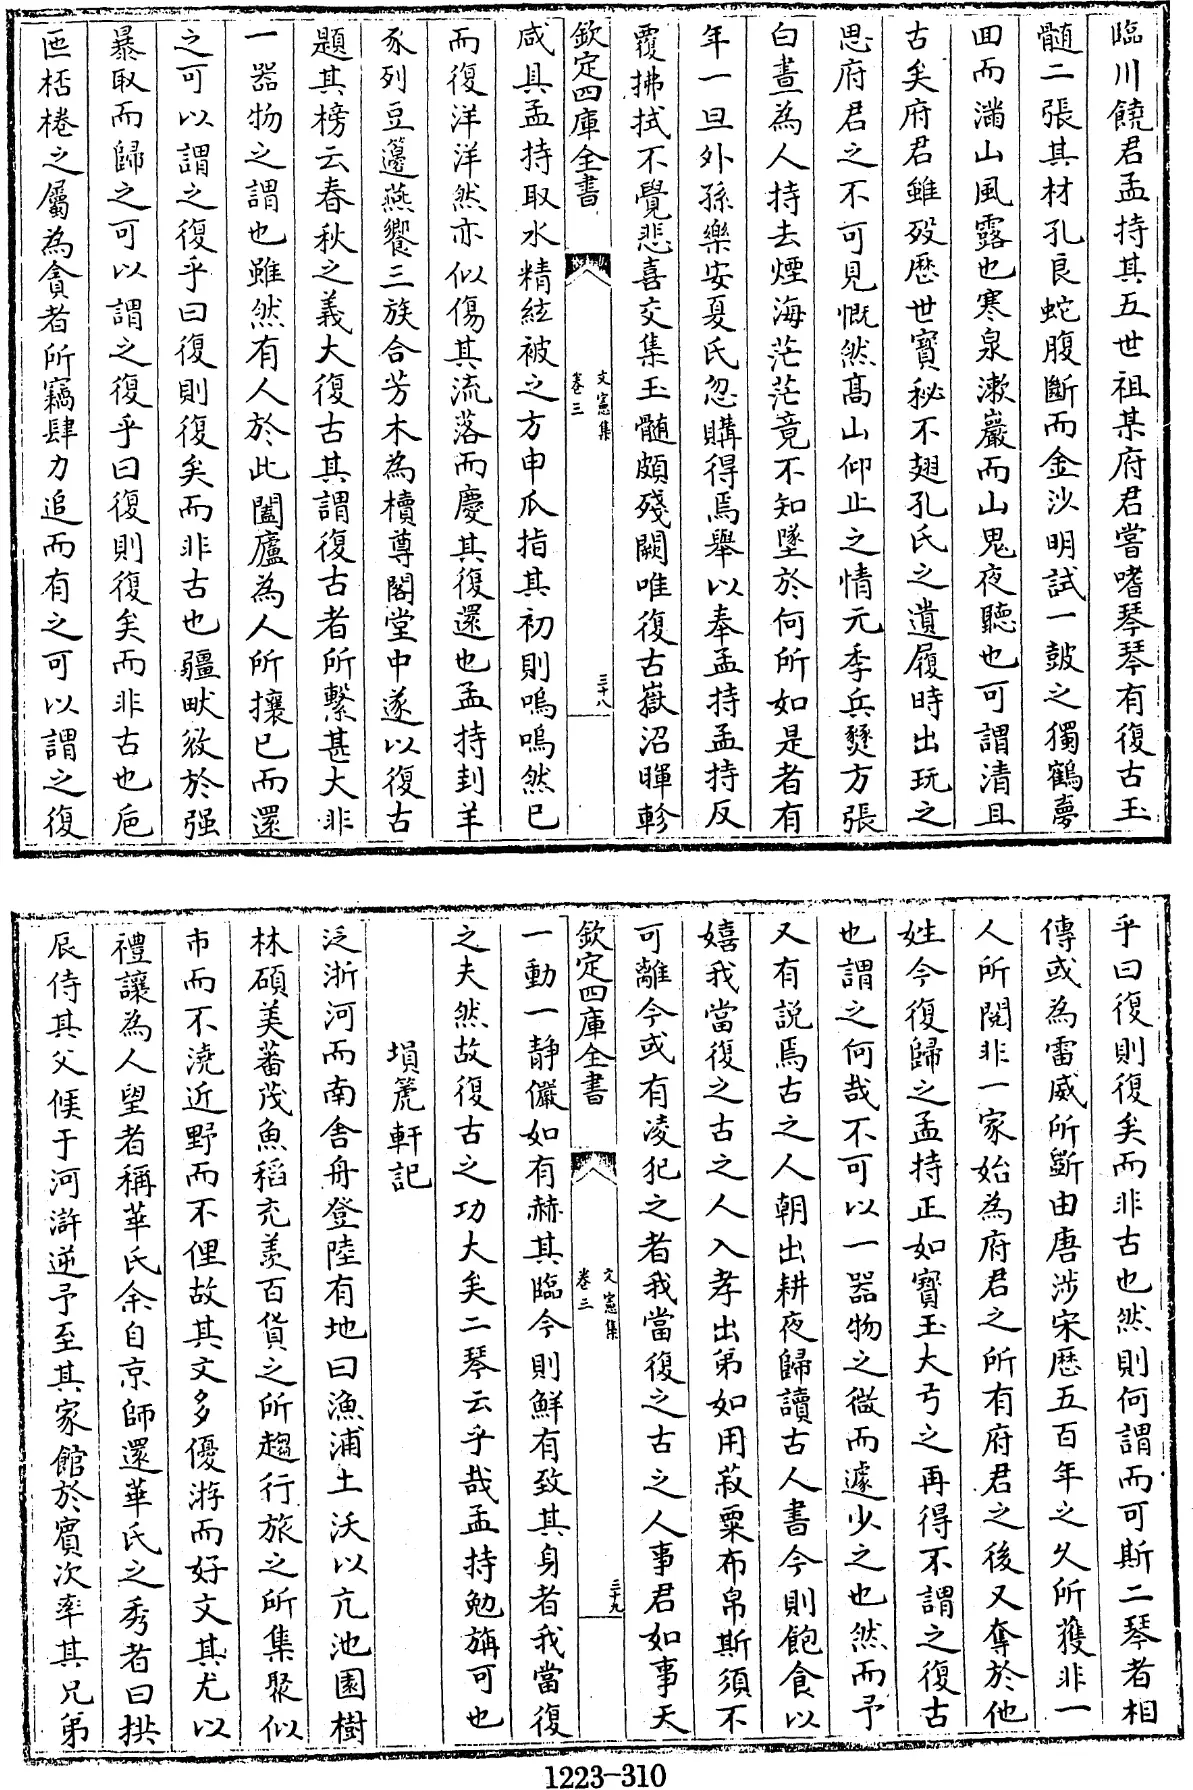 臨川饒君孟持其五世祖某府君嘗嗜琴琴有復古玉
髓二張其材孔良蛇腹斷而金沙明試一鼓之獨鶴夢
回而滿山風露也寒泉漱巖而山鬼夜聽也可謂清且
古矣府君雖歿歷世寳秘不翅孔氏之遺履時出玩之
思府君之不可見慨然髙山仰止之情元季兵燹方張
白晝為人持去煙海茫茫竟不知墜於何所如是者有
年一旦外孫樂安夏氏忽購得焉舉以奉孟持孟持反
覆拂拭不覺悲喜交集玉髓頗殘闕唯復古嶽沼暉軫
欽定四庫全書
文憲集
卷三
三十八
咸具孟持取水精絃被之方申爪指其初則嗚嗚然已
而復洋洋然亦似傷其流落而慶其復還也孟持封羊
豕列豆籩燕饗三族合芳木為櫝尊閣堂中遂以復古
題其榜云春秋之義大復古其謂復古者所繫甚大非
一器物之謂也雖然有人於此闔廬為人所攘已而還
之可以謂之復乎曰復則復矣而非古也疆畎攽於强
暴取而歸之可以謂之復乎曰復則復矣而非古也巵
匜桮棬之屬為貪者所竊肆力追而有之可以謂之復
乎曰復則復矣而非古也然則何謂而可斯二琴者相
傳或為雷威所斵由唐涉宋歷五百年之久所獲非一
人所閱非一家始為府君之所有府君之後又奪於他
姓今復歸之孟持正如寳玉大弓之再得不謂之復古
也謂之何哉不可以一器物之微而遽少之也然而予
又有説焉古之人朝出耕夜歸讀古人書今則飽食以
嬉我當復之古之人入孝出弟如用菽粟布帛斯須不
可離今或有凌犯之者我當復之古之人事君如事天
欽定四庫全書
文憲集
卷三
三十九
一動一靜儼如有赫其臨今則鮮有致其身者我當復
之夫然故復古之功大矣二琴云乎哉孟持勉旃可也
塤篪軒記
泛浙河而南舍舟登陸有地曰漁浦土沃以亢池園樹
林碩美蕃茂魚稻充羨百貨之所趨行旅之所集聚似
市而不澆近野而不俚故其文多優游而好文其尤以
禮讓為人望者稱華氏余自京師還華氏之秀者曰拱
辰侍其父候于河滸逆予至其家館於賓次率其兄弟
1223-310